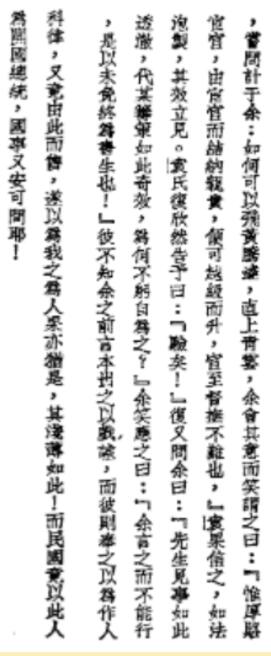 ，嘗問計于余：如何可以飛黃騰達，直上青雲，余會其意而笑謂之曰：『惟厚賂
宦官，由宦官而結納親貴，便可越級而升，官至督撫不難也，』袁果信之，如法
泡製，其效立見。袁氏復欣然告予曰：『驗矣！』復又問余曰：『先生見事如此
透澈，代某籌策如此奇效，為何不躬自為之？』余笑應之曰：『余言之而不能行
，是以未免終為書生也！』彼不知余之前言本出之以戲謔，而彼則奉之以為作人
科律，又竟由此而售，遂以為我之為人亦猶是，其淺薄如此！而民國竟以此人
為開國總統，國事又安可問耶！